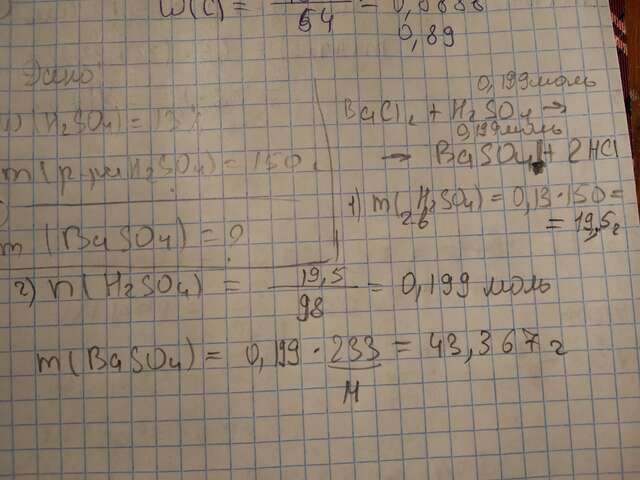 W(C) = 
64
= 0,8888
0,89
Дано
W(H₂SO₄) = 13%
m(р-ра H₂SO₄) = 150г
m(BaSO₄) = ?
0,199 моль
BaCl₂ + H₂SO₄ →
0,199 моль
→ BaSO₄↓ + 2HCl
1) m(H₂SO₄) = 0,13·150 =
в-в
= 19,5г
2) n(H₂SO₄) = 19,5/98 = 0,199 моль
m(BaSO₄) = 0,199·233 = 43,367г
M